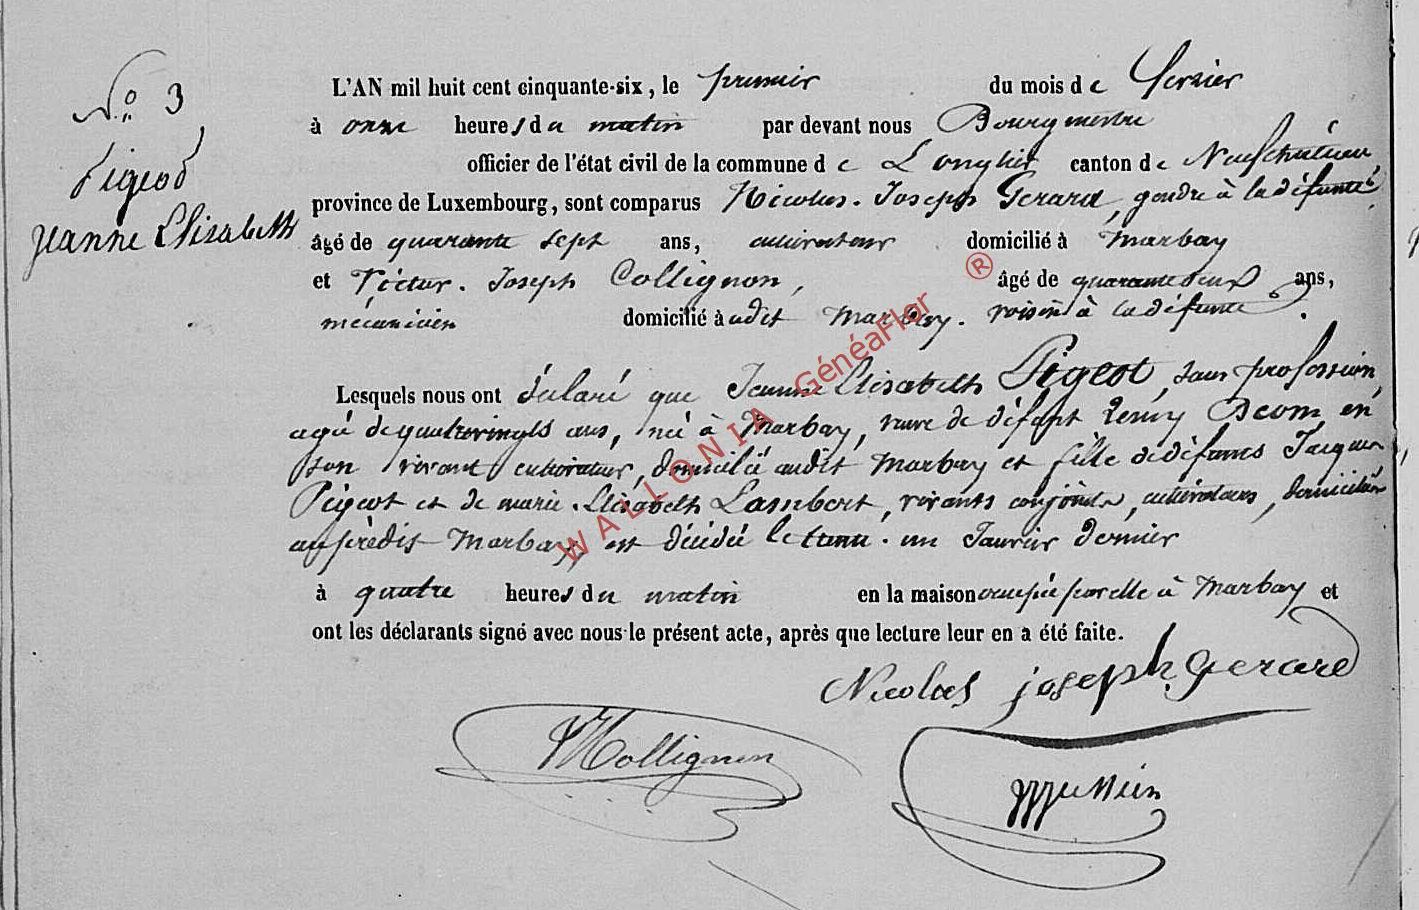 N° 3
Pigeot
Jeanne Elisabeth
L'AN mil huit cent cinquante-six, le premier du mois de fevrier
à onze heures du matin par devant nous Bourgmestre
officier de l'état civil de la commune de Longlier canton de Neufchateau,
province de Luxembourg, sont comparus Nicolas-Joseph Gerard, gendre à la défunte,
âgé de quarante sept ans, cultivateur domicilié à Marbay
et Victor-Joseph Collignon, âgé de quarante deux ans,
mécanicien domicilié àudit Marbay. voisin à la défunte.
Lesquels nous ont déclaré que Jeanne Elisabeth Pigeot, sans profession,
agé de quatrevingts ans, né à Marbay, veuve de défunt Remy Deom, en
son vivant cultivateur, domicilié audit Marbay et fille de défunts Jacques
Pigeot et de marie-Elisabeth Lambert, vivants conjoints, cultivateurs, domiciliés
auprèdit Marbay, est décédé le trente-un Janvier dernier
à quatre heures du matin en la maison occupée par elle à Marbay et
ont les déclarants signé avec nous le présent acte, après que lecture leur en a été faite.
Nicolas joseph Gerard
VJCollignon
WALLONIA GénéaFlor ®